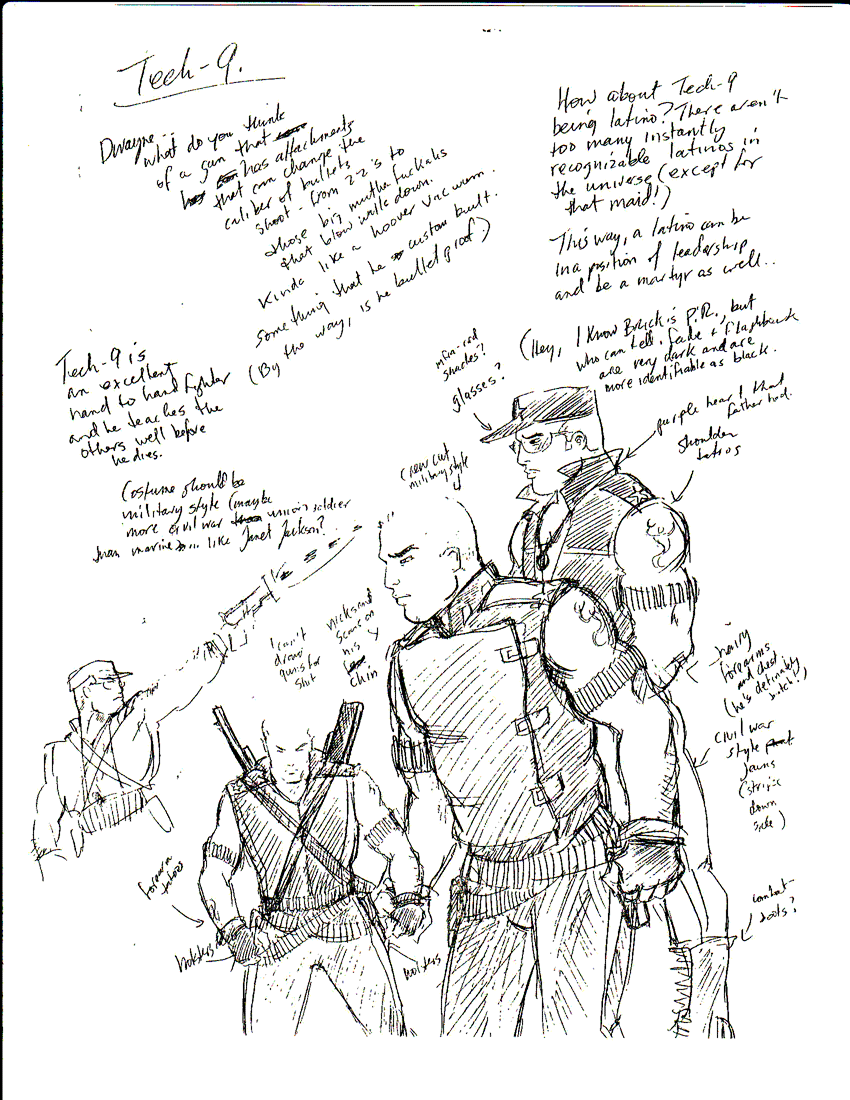 Tech-9.
Dwayne...
what do you think
of a gun that
has attachments
that can change the
caliber of bullets
shoot - from 22's to
those big mutha fuckahs
that blow walls down.
Kinda like a hoover vacuum.
something that he custom built.
(By the way, is he bulletproof?)
How about Tech-9
being latino? There aren't
too many instantly
recognizable latinos in
the universe (except for
that maid!)
This way, a latino can be
in a position of leadership
and be a martyr as well..
(Hey, I know Brick is P.R., but
who can tell. Fade & Flashback
are very dark and are
more identifiable as black.
Tech-9 is
an excellent
hand to hand fighter
and he teaches the
others well before
he dies.
Costume should be
military style (maybe
more civil war union soldier
than marine ... like Janet Jackson?
infra-red
shades?
glasses?
purple heart that
father had.
shoulder
tatoos
crew cut
military style
I can't
draw
guns for
shit
nicks and
scars on
his
chin
hairy
forearms
and chest
(he's definitely
butch!)
civil war
style
jeans
(stripe
down
side)
combat-
boots?
forearm
tatoos
holsters
holsters